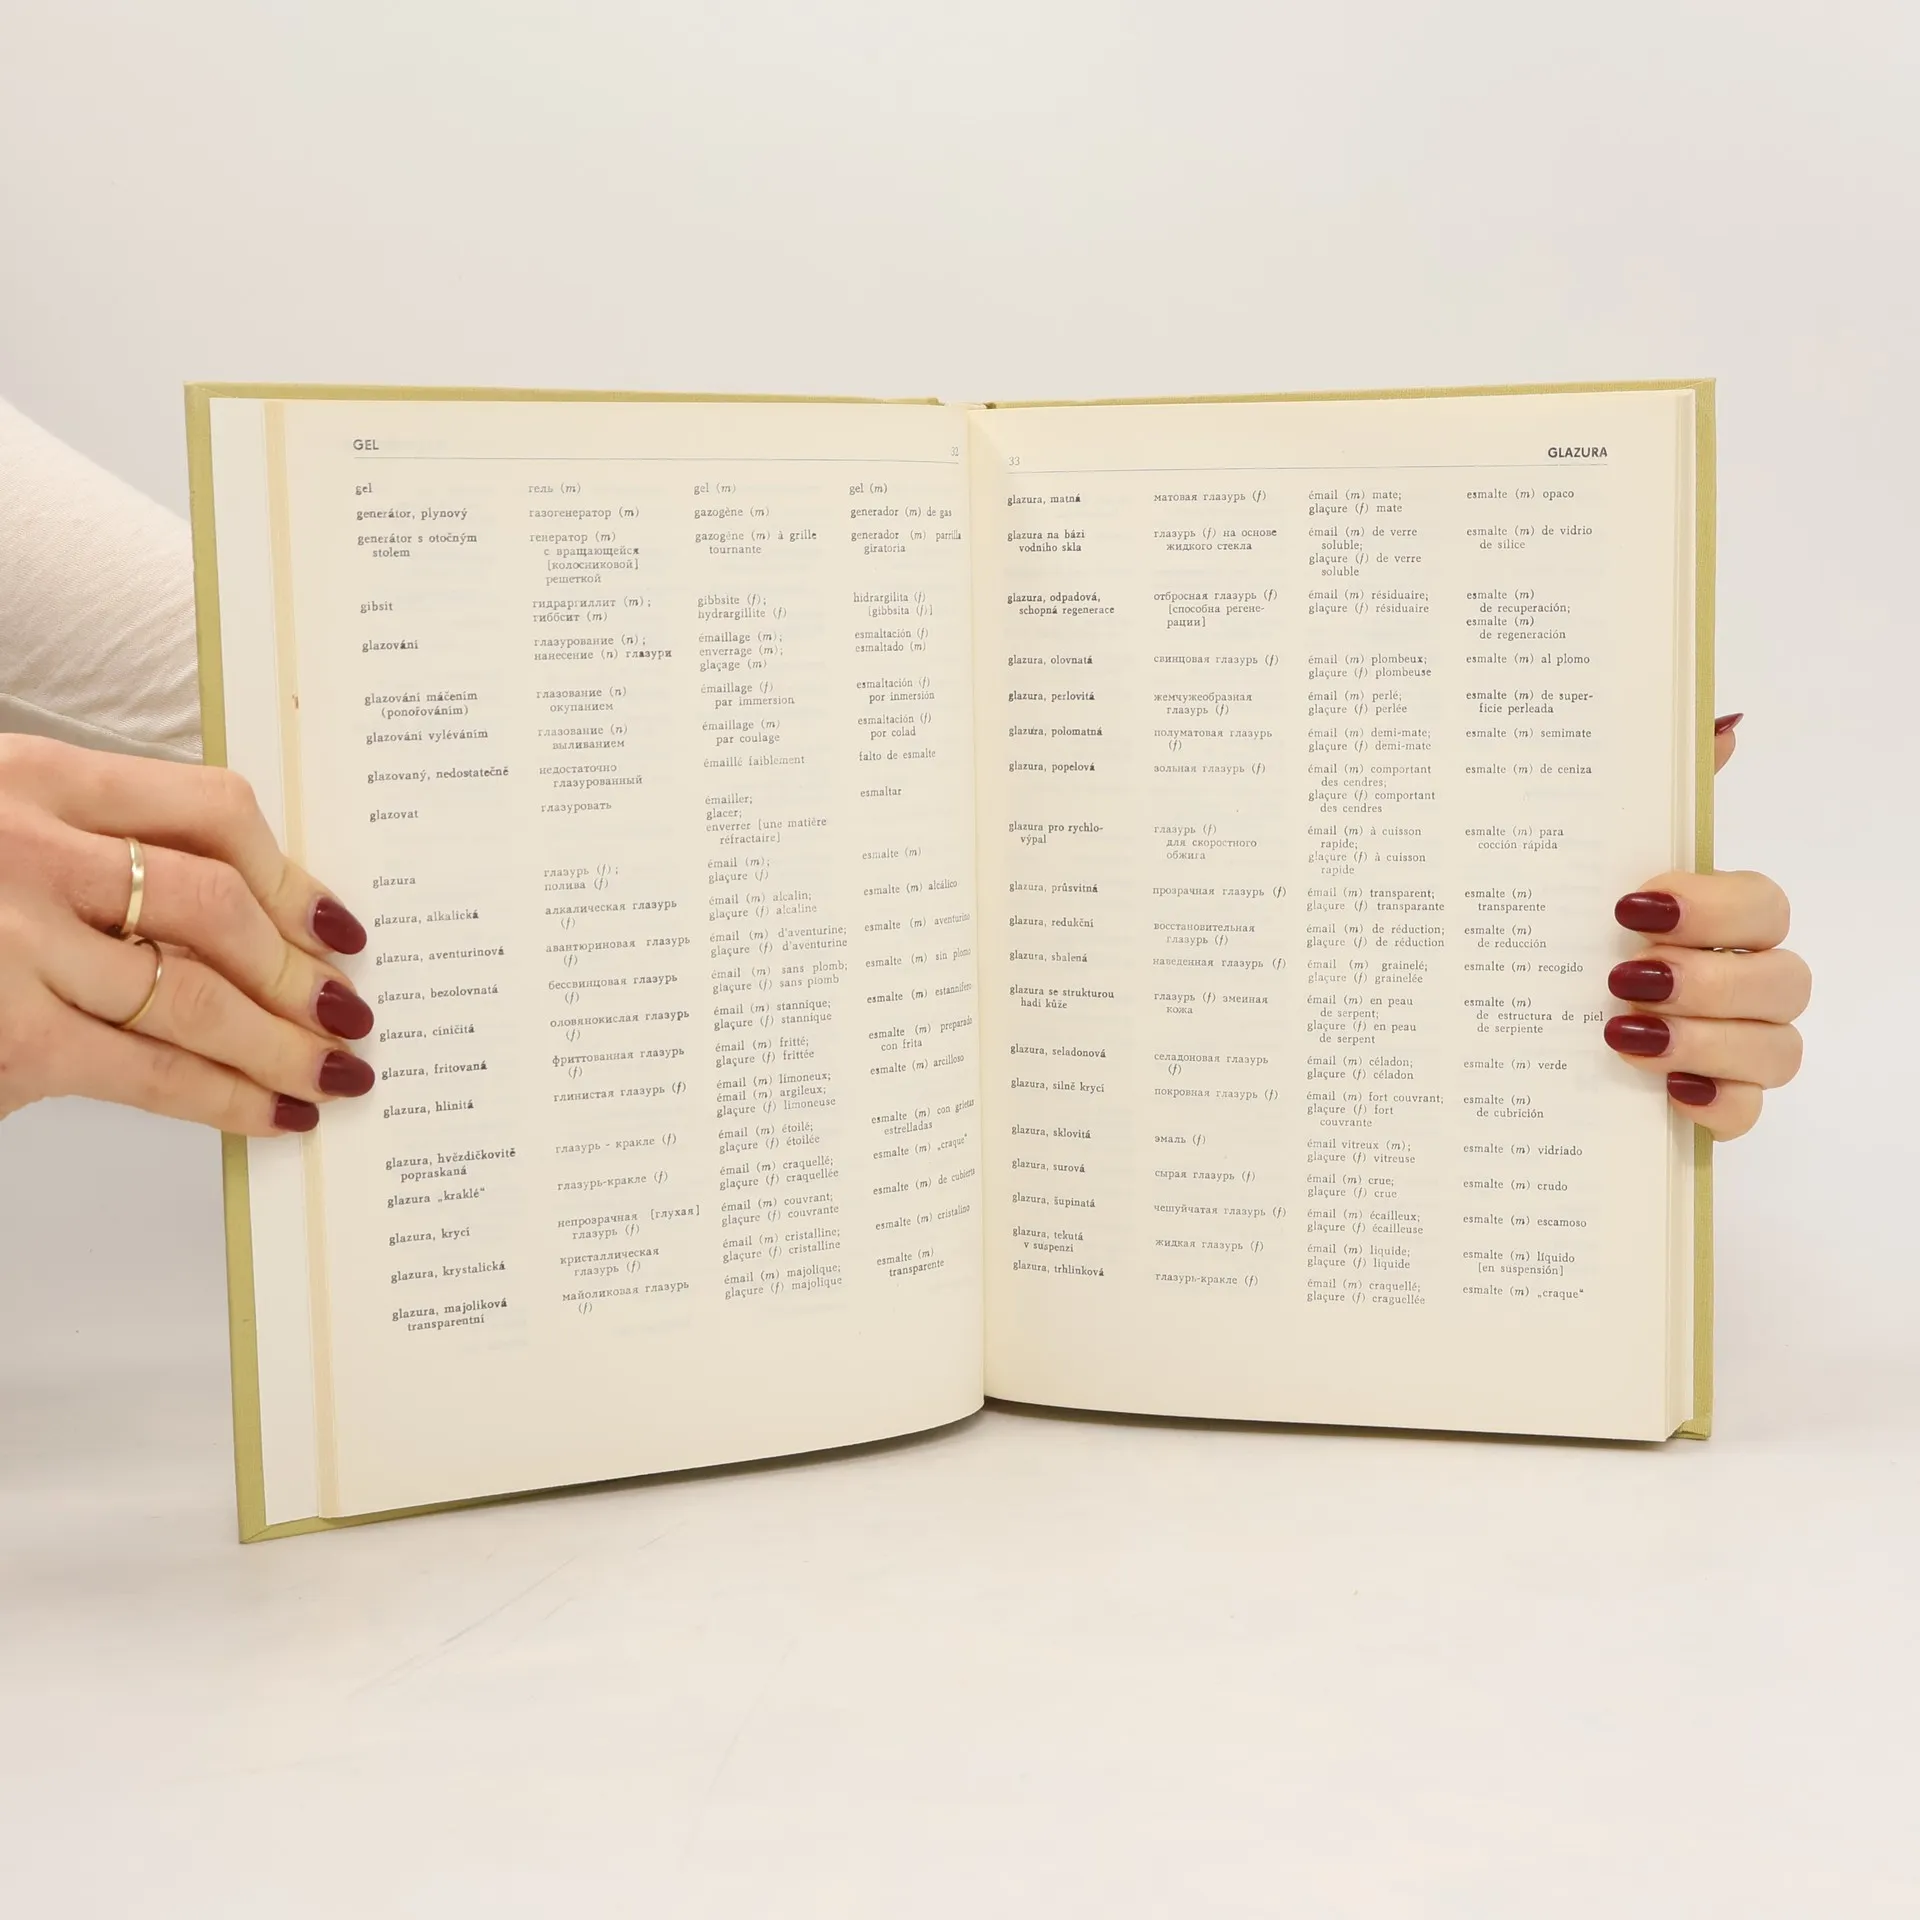 GEL 32
gel гель (m) gel (m) gel (m)
generátor, plynový газогенератор (m) gazogène (m) generador (m) de gas
generátor s otočným генератор (m) gazogène (m) à grille generador (m) parrilla
stolem с вращающейся tournante giratoria
[колосниковой]
решеткой
gibsit гидраргиллит (m); gibbsite (f); hidrargilita (f)
гиббсит (m) hydrargillite (f) [gibbsita (f)]
glazování глазурование (n); émaillage (m); esmaltación (f)
нанесение (n) глазури enverrage (m); esmaltado (m)
glaçage (m)
glazování máčením глазование (n) émaillage (f) esmaltación (f)
(ponořováním) окунанием par immersion por inmersión
glazování vyléváním глазование (n) émaillage (m) esmaltación (f)
выливанием par coulage por colad
glazovaný, nedostatečně недостаточно émaillé faiblement falto de esmalte
глазурованный
glazovat глазуровать émailler; esmaltar
glacer;
enverrer [une matière
réfractaire]
glazura глазурь (f); émail (m); esmalte (m)
полива (f) glaçure (f)
glazura, alkalická алкалическая глазурь émail (m) alcalin; esmalte (m) alcálico
(f) glaçure (f) alcaline
glazura, aventurinová авантюриновая глазурь émail (m) d'aventurine; esmalte (m) aventurino
(f) glaçure (f) d'aventurine
glazura, bezolovnatá бессвинцовая глазурь émail (m) sans plomb; esmalte (m) sin plomo
(f) glaçure (f) sans plomb
glazura, ciničitá оловянокислая глазурь émail (m) stannique; esmalte (m) estannífero
(f) glaçure (f) stannique
glazura, fritovaná фриттованная глазурь émail (m) fritté; esmalte (m) preparado
(f) glaçure (f) frittée con frita
glazura, hlinitá глинистая глазурь (f) émail (m) limoneux; esmalte (m) arcilloso
émail (m) argileux;
glaçure (f) limoneuse
glazura, hvězdičkovitě глазурь - кракле (f) émail (m) étoilé; esmalte (m) con grietas
popraskaná glaçure (f) étoilée estrelladas
glazura „kraklé“ глазурь-кракле (f) émail (m) craquellé; esmalte (m) „craque“
glaçure (f) craquellée
glazura, krycí непрозрачная [глухая] émail (m) couvrant; esmalte (m) de cubierta
глазурь (f) glaçure (f) couvrante
glazura, krystalická кристаллическая émail (m) cristalline; esmalte (m) cristalino
глазурь (f) glaçure (f) cristalline
glazura, majoliková майоликовая глазурь émail (m) majolique; esmalte (m)
transparentní (f) glaçure (f) majolique transparente
33 GLAZURA
glazura, matná матовая глазурь (f) émail (m) mate; esmalte (m) opaco
glaçure (f) mate
glazura na bázi глазурь (f) на основе émail (m) de verre esmalte (m) de vidrio
vodního skla жидкого стекла soluble; de sílice
glaçure (f) de verre
soluble
glazura, odpadová, отбросная глазурь (f) émail (m) résiduaire; esmalte (m)
schopná regenerace [способна регене- glaçure (f) résiduaire de recuperación;
рации] esmalte (m)
de regeneración
glazura, olovnatá свинцовая глазурь (f) émail (m) plombeux; esmalte (m) al plomo
glaçure (f) plombeuse
glazura, perlovitá жемчужеобразная émail (m) perlé; esmalte (m) de super-
глазурь (f) glaçure (f) perlée ficie perleada
glazura, polomatná полуматовая глазурь émail (m) demi-mate; esmalte (m) semimate
(f) glaçure (f) demi-mate
glazura, popelová зольная глазурь (f) émail (m) comportant esmalte (m) de ceniza
des cendres;
glaçure (f) comportant
des cendres
glazura pro rychlo- глазурь (f) émail (m) à cuisson esmalte (m) para
výpal для скоростного rapide; cocción rápida
обжига glaçure (f) à cuisson
rapide
glazura, průsvitná прозрачная глазурь (f) émail (m) transparent; esmalte (m)
glaçure (f) transparante transparente
glazura, redukční восстановительная émail (m) de réduction; esmalte (m)
глазурь (f) glaçure (f) de réduction de reducción
glazura, sbalená наведенная глазурь (f) émail (m) grainelé; esmalte (m) recogido
glaçure (f) grainelée
glazura se strukturou глазурь (f) змеиная émail (m) en peau esmalte (m)
hadí kůže кожа de serpent; de estructura de piel
glaçure (f) en peau de serpiente
de serpent
glazura, seladonová селадоновая глазурь émail (m) céladon; esmalte (m) verde
(f) glaçure (f) céladon
glazura, silně krycí покровная глазурь (f) émail (m) fort couvrant; esmalte (m)
glaçure (f) fort de cubrición
couvrante
glazura, sklovitá эмаль (f) émail vitreux (m); esmalte (m) vidriado
glaçure (f) vitreuse
glazura, surová сырая глазурь (f) émail (m) crue; esmalte (m) crudo
glaçure (f) crue
glazura, šupinatá чешуйчатая глазурь (f) émail (m) écailleux; esmalte (m) escamoso
glaçure (f) écailleuse
glazura, tekutá жидкая глазурь (f) émail (m) liquide; esmalte (m) líquido
v suspenzi glaçure (f) liquide [en suspensión]
glazura, trhlinková глазурь-кракле (f) émail (m) craquellé; esmalte (m) „craque“
glaçure (f) craguellée